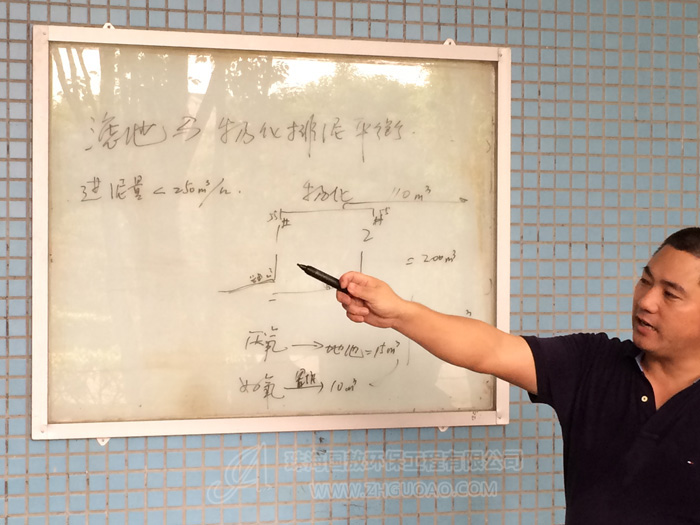 滤池与物化排泥平衡.
进泥量<250m³/h.
物化 110m³
2
=200m³
厌氧→地池=15m³
好氧→10m³
珠海国傲环保工程有限公司
WWW.ZHGUOAO.COM